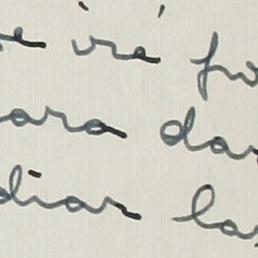 e irá
ara da
diar la